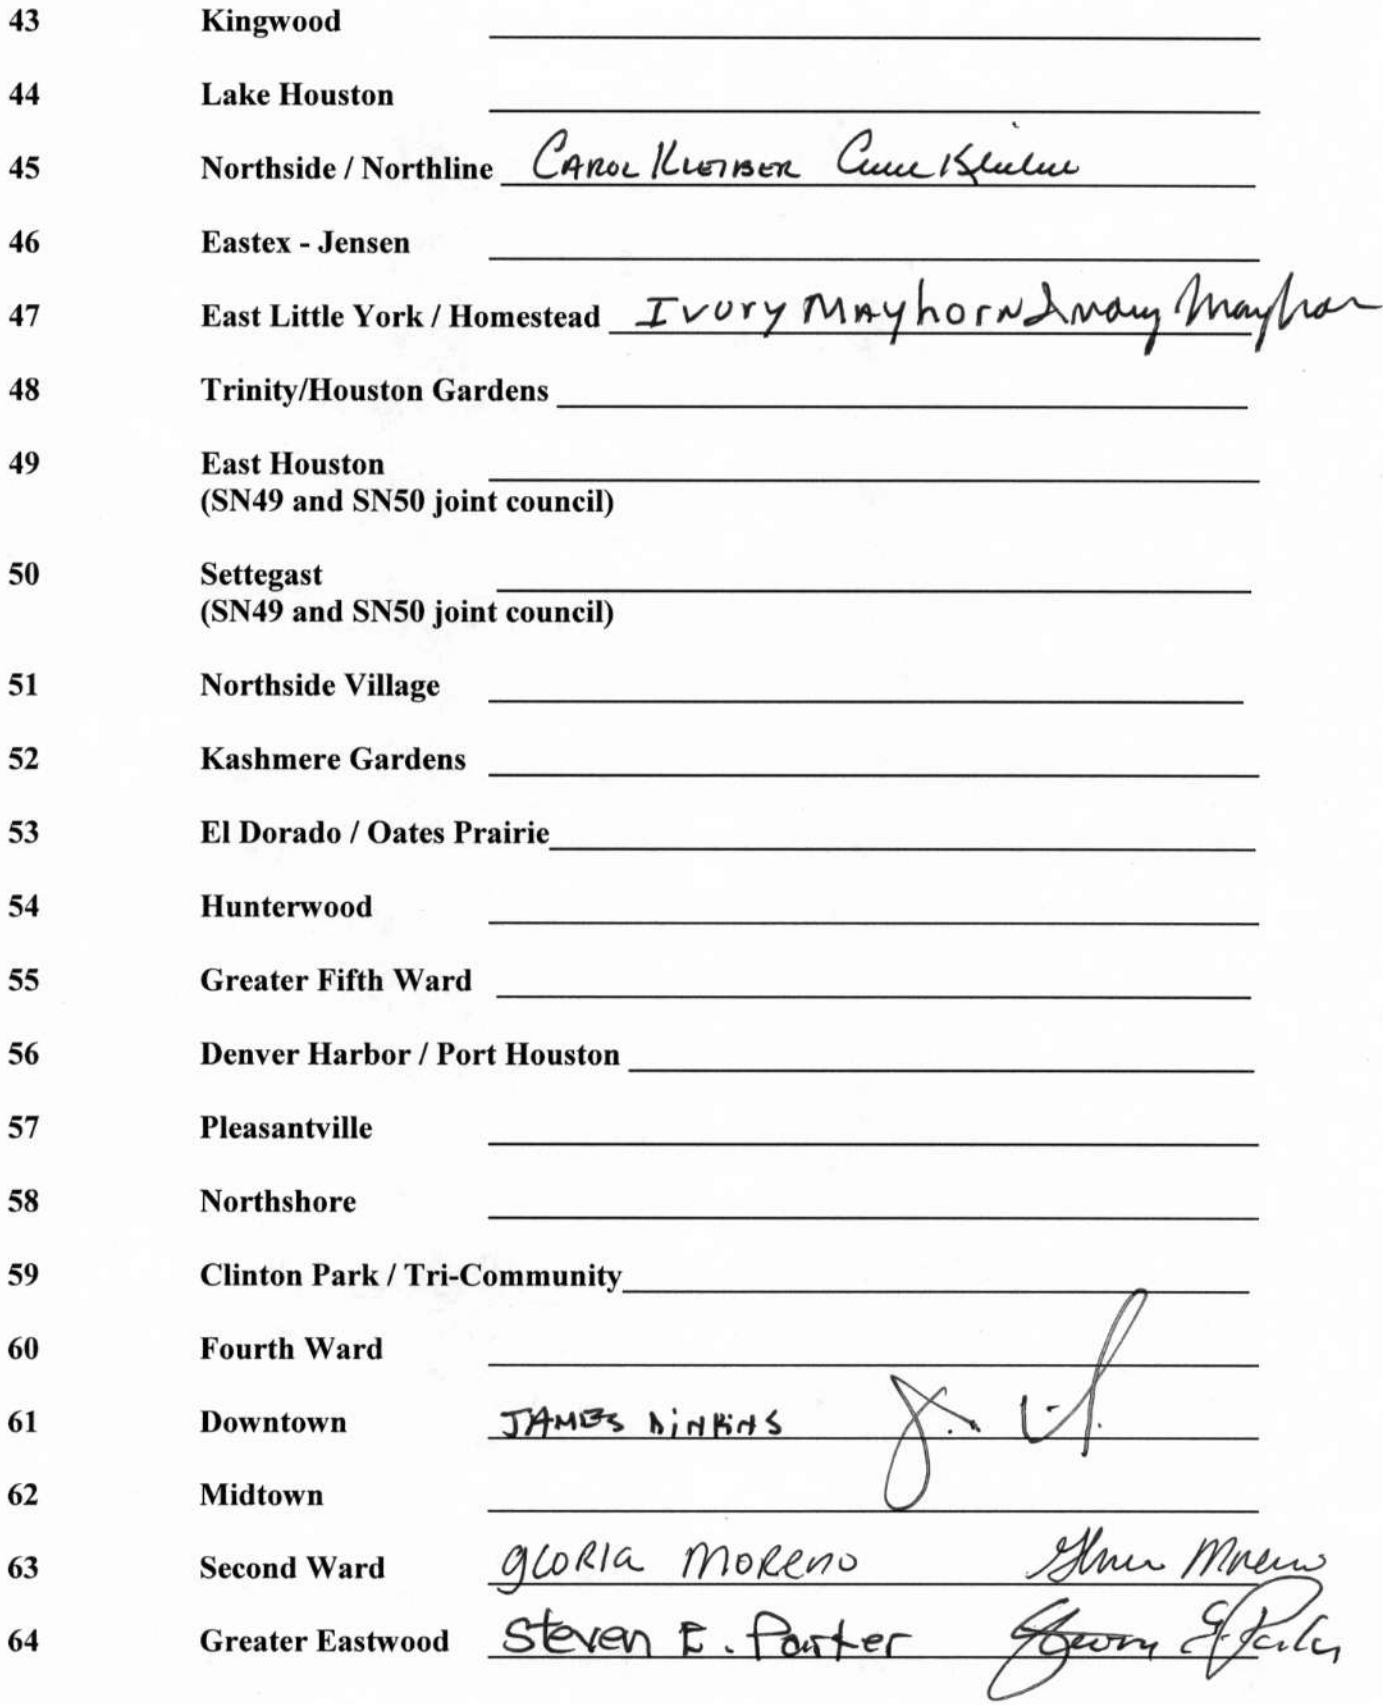 43 Kingwood
44 Lake Houston
45 Northside / Northline CAROL KLEIBER
46 Eastex - Jensen
47 East Little York / Homestead Ivory Mayhorn Ivory Mayhorn
48 Trinity/Houston Gardens
49 East Houston
(SN49 and SN50 joint council)
50 Settegast
(SN49 and SN50 joint council)
51 Northside Village
52 Kashmere Gardens
53 El Dorado / Oates Prairie
54 Hunterwood
55 Greater Fifth Ward
56 Denver Harbor / Port Houston
57 Pleasantville
58 Northshore
59 Clinton Park / Tri-Community
60 Fourth Ward
61 Downtown JAMES DINKINS
62 Midtown
63 Second Ward GLORIA MORENO Gloria Moreno
64 Greater Eastwood Steven E. Parker Steven E. Parker